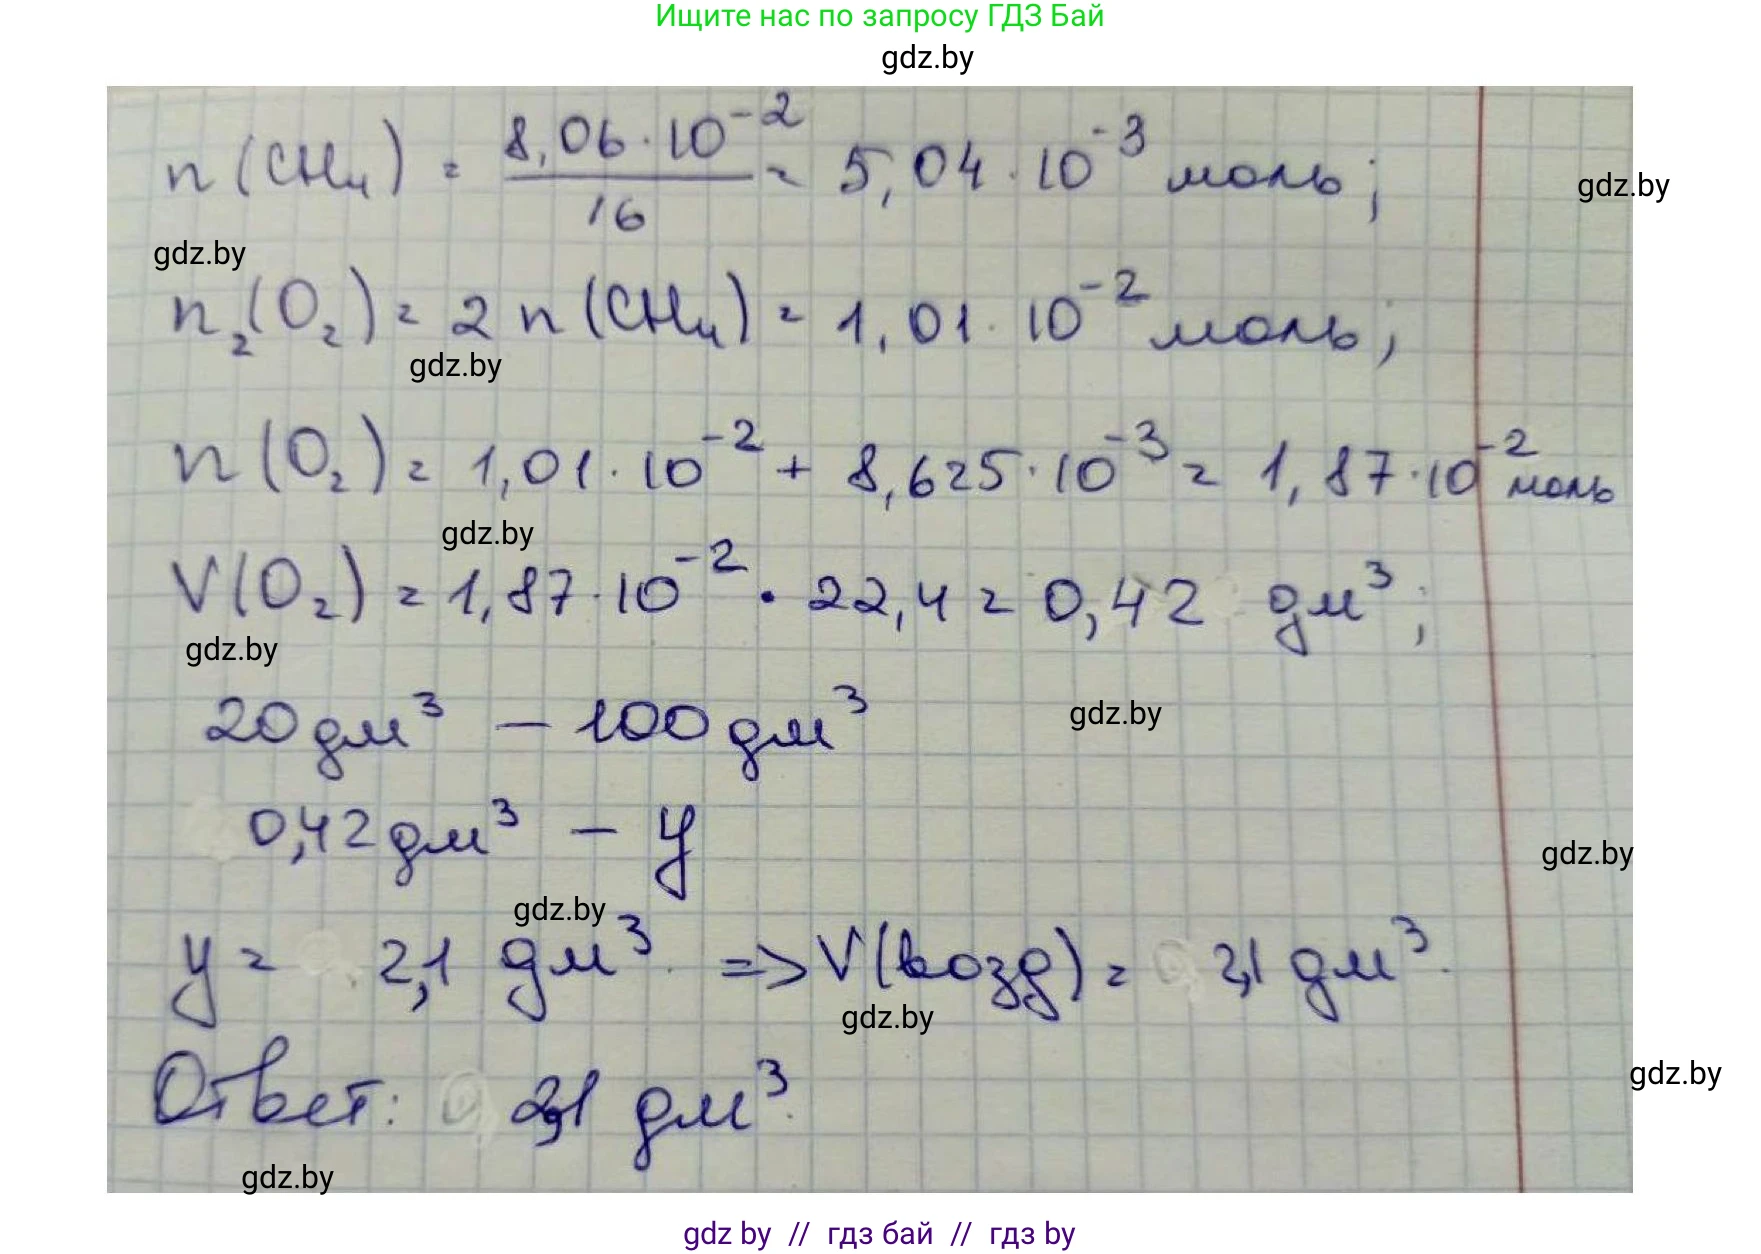 Ищите нас по запросу ГДЗ Бай
gdz.by
n(CH₄) = 8,06·10⁻²/16 = 5,04·10⁻³ моль;
gdz.by
gdz.by
n₂(O₂) = 2n(CH₄) = 1,01·10⁻² моль;
gdz.by
n(O₂) = 1,01·10⁻² + 8,625·10⁻³ = 1,87·10⁻² моль
gdz.by
V(O₂) = 1,87·10⁻² · 22,4 = 0,42 дм³;
gdz.by
20 дм³ – 100 дм³
gdz.by
0,42 дм³ – y
gdz.by
gdz.by
y = 2,1 дм³. => V(возд) = 2,1 дм³.
gdz.by
Ответ: 2,1 дм³.
gdz.by
gdz.by
gdz by // гдз бай // гдз by